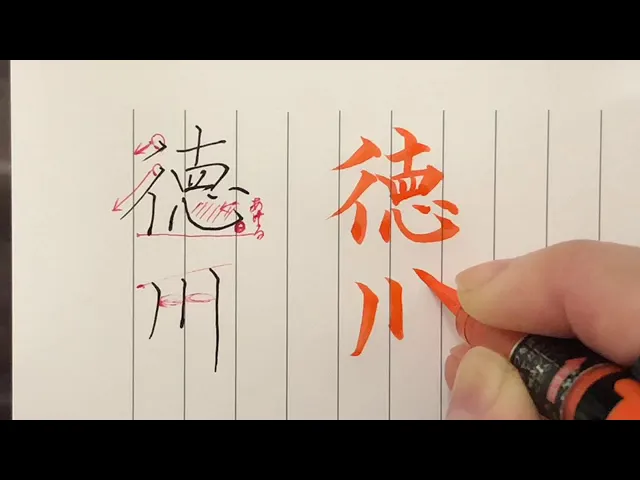 徳川
あける
徳川